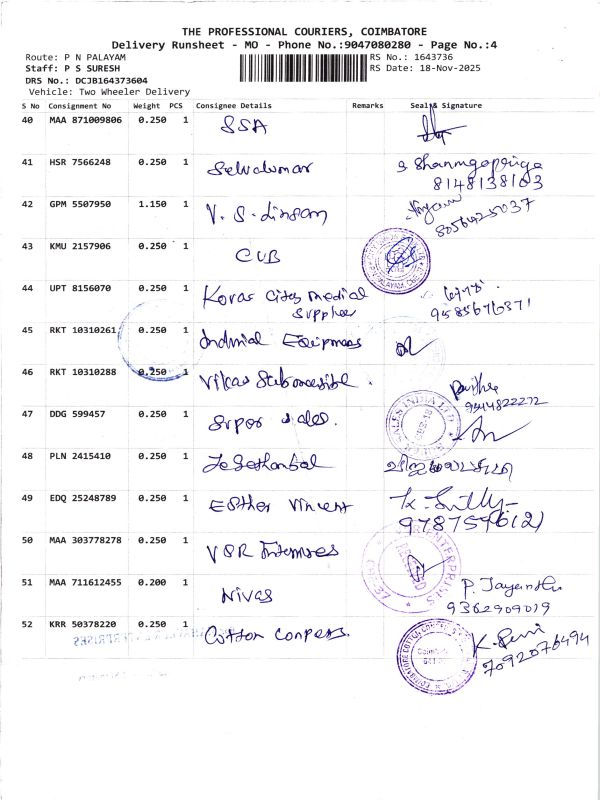 THE PROFESSIONAL COURIERS, COIMBATORE
Delivery Runsheet - MO - Phone No.:9047080280 - Page No.:4
Route: P N PALAYAM
RS No.: 1643736
Staff: P S SURESH
RS Date: 18-Nov-2025
DRS No.: DCJB164373604
Vehicle: Two Wheeler Delivery
S No Consignment No Weight PCS Consignee Details Remarks Seal & Signature
40 MAA 871009806 0.250 1 SSA
41 HSR 7566248 0.250 1 Selvakumar S Shanmgapriya
8148138163
42 GPM 5507950 1.150 1 V. S.
8056425037
43 KMU 2157906 0.250 1 CUB
44 UPT 8156070 0.250 1 Kovai City Medical
Supplier
9585676371
45 RKT 10310261 0.250 1
46 RKT 10310288 0.250 1 Vikas
9344822272
47 DDG 599457 0.250 1 Super Sales.
48 PLN 2415410 0.250 1
49 EDQ 25248789 0.250 1 Esther Vincent
50 MAA 303778278 0.250 1 VSR
51 MAA 711612455 0.200 1 Nivas P.
9362909019
52 KRR 50378220 0.250 1 Cotton K.
7092076494